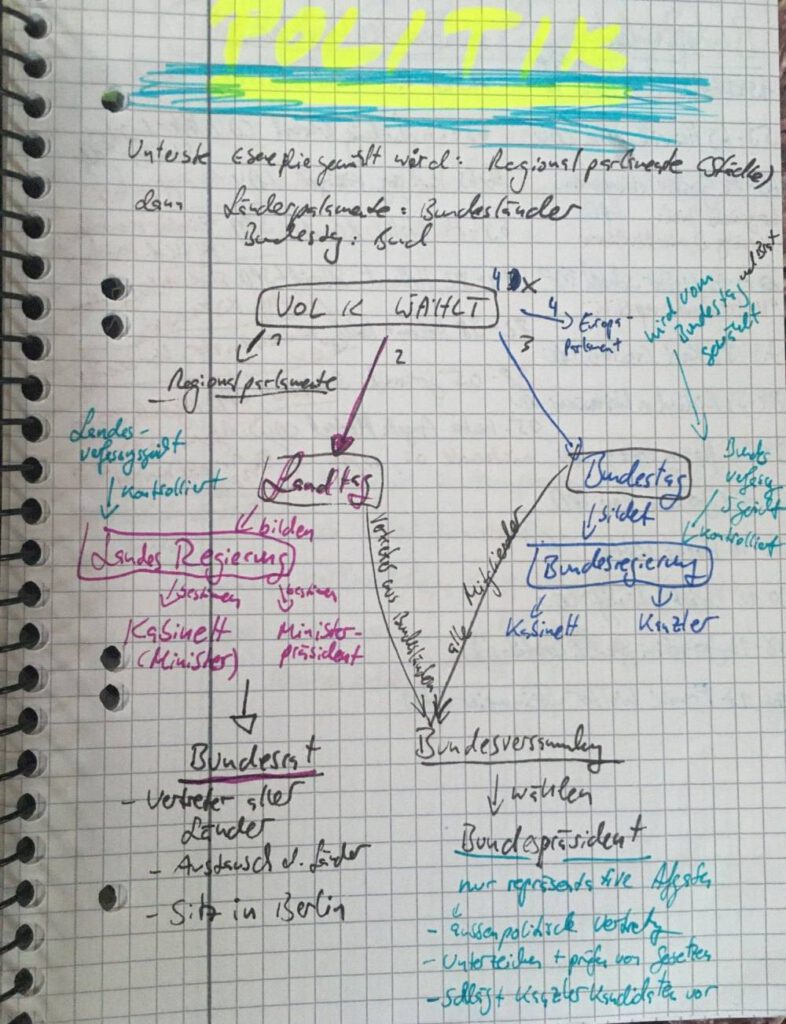 POLITIK
Unterste Ebene die gewählt wird: Regionalparlamente (Städte)
dann Länderparlamente: Bundesländer
Bundestag: Bund
VOLK WÄHLT
4
x
4
Europa-
parlament
wird vom
Bundestag und Brat
gewählt
1
2
3
Regionalparlamente
Landes-
kontrolliert
Landtag
Bundestag
Bundes
verfassung
sgericht
kontrolliert
bilden
bildet
Landes Regierung
Bundesregierung
bestimmen
bestimmen
Kabinett
(Minister)
Minister-
präsident
Kabinett
Kanzler
Vertreter aus Bundesländern
alle Mitglieder
Bundesrat
- Vertreter aller
Länder
- Austausch d. Länder
- Sitz in Berlin
Bundesversammlung
wählen
Bundespräsident
nur repräsentative Afgaben
- aussenpolitisch
- Unterzeichen + prüfen von Gesetzen
- schlägt Kanzlerkandidaten vor